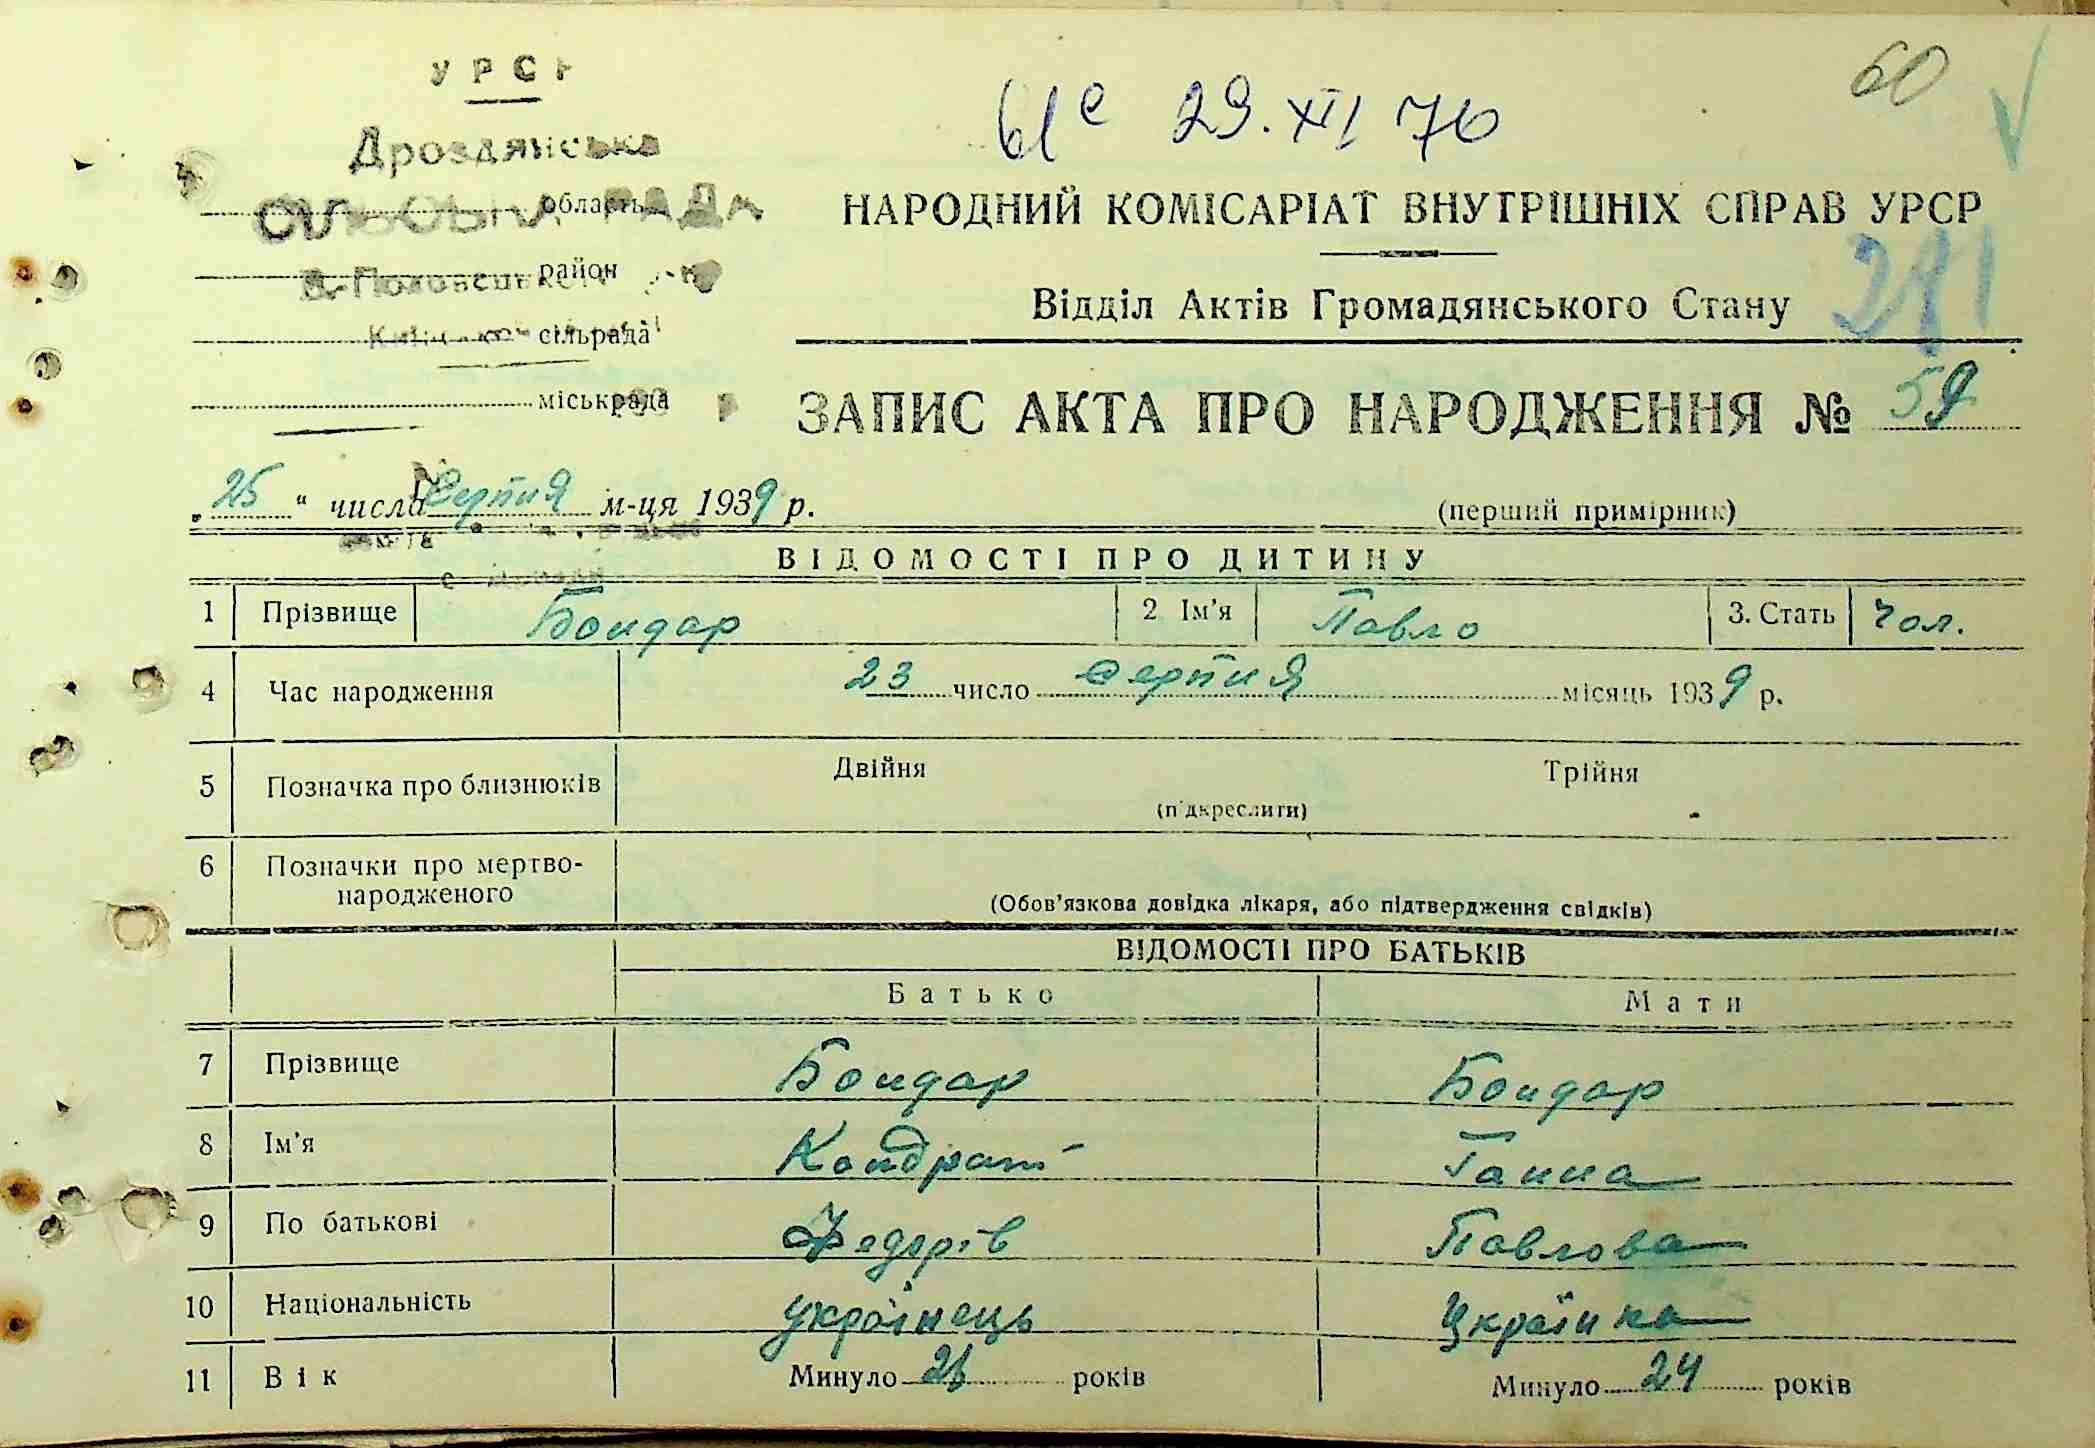 УРСР
60
61е 29.XII 76
Дроздянська
СІЛЬСЬКА РАДА
область
район
сільрада
міськрада
НАРОДНИЙ КОМІСАРІАТ ВНУТРІШНІХ СПРАВ УРСР
281
Відділ Актів Громадянського Стану
ЗАПИС АКТА ПРО НАРОДЖЕННЯ № 59
„25“ числа Серпня м-ця 1939 р.
(перший примірник)
ВІДОМОСТІ ПРО ДИТИНУ
1 Прізвище Бондар 2 Ім'я Павло 3. Стать чол.
4 Час народження 23 число Серпня місяць 1939 р.
5 Позначка про близнюків Двійня Трійня
(підкреслити)
6 Позначки про мертво-
народженого
(Обов'язкова довідка лікаря, або підтвердження свідків)
ВІДОМОСТІ ПРО БАТЬКІВ
Батько Мати
7 Прізвище Бондар Бондар
8 Ім'я Кондрат Ганна
9 По батькові Федорів Павлова
10 Національність українець Українка
11 Вік Минуло років Минуло 24 років